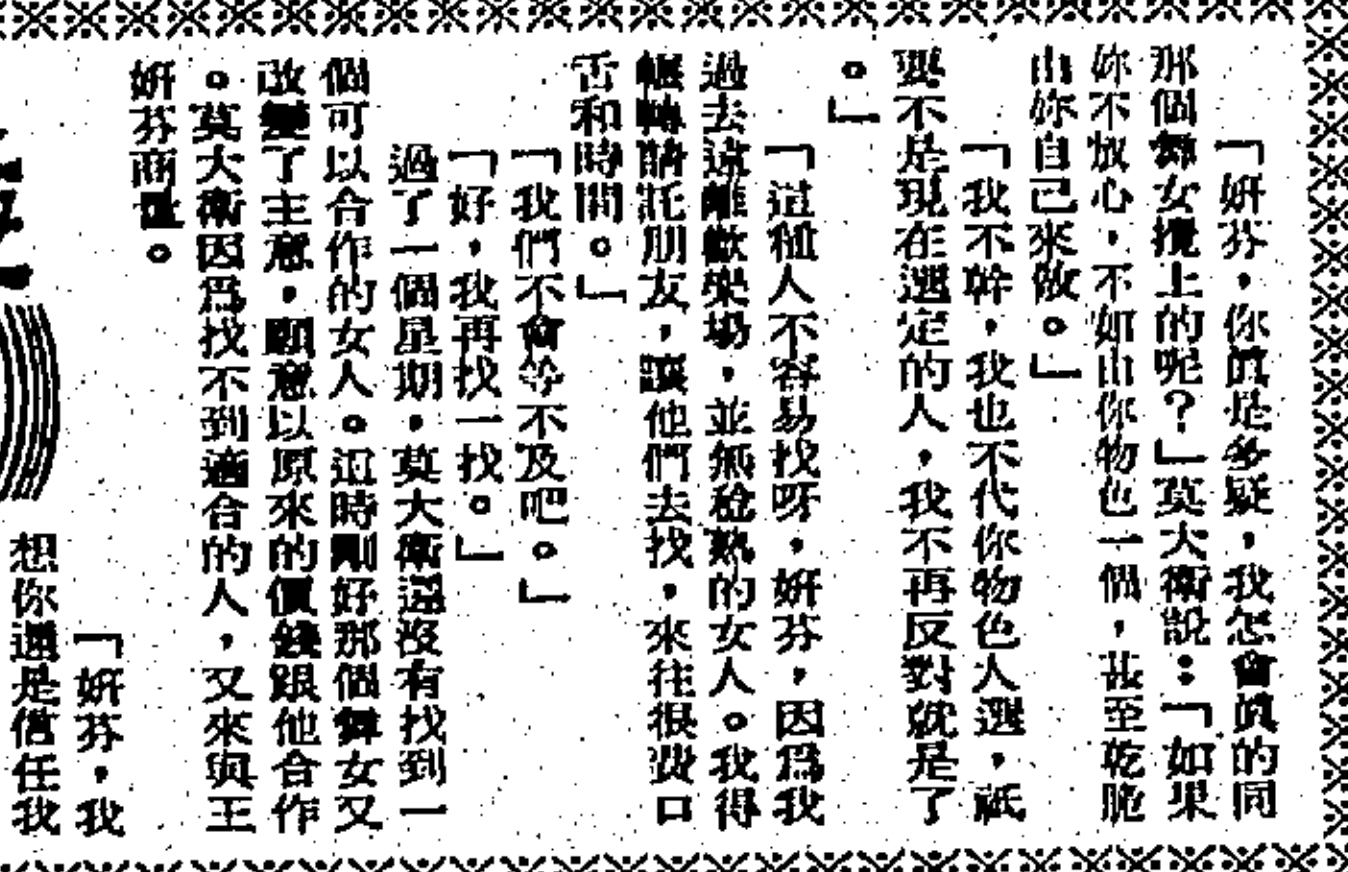 「妍芬,你眞是多疑,我怎會眞的同
那個舞女攪上的呢?」莫大衞說:「如果
妳不放心,不如由你物色一個,甚至乾脆
由妳自己來做。」
「我不幹,我也不代你物色人選,祇
要不是現在選定的人,我不再反對就是了
。」
「這種人不容易找呀,妍芬,因爲我
過去遠離歡樂場,並無稔熟的女人。我得
輾轉請託朋友,讓他們去找,來往很費口
舌和時間。」
「我們不會等不及吧。」
「好,我再找一找。」
過了一個星期,莫大衞還沒有找到一
個可以合作的女人。這時剛好那個舞女又
改變了主意,願意以原來的價錢跟他合作
。莫大衞因爲找不到適合的人,又來與王
妍芬商量。
「妍芬,我
想你還是信任我